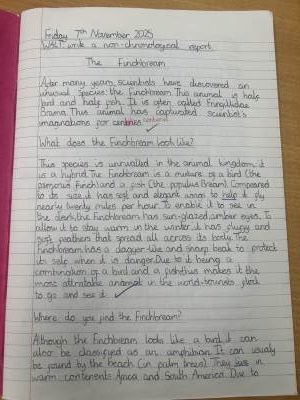 Friday 7th November 2025
WALT: write a non-chronological report.
The Finchbream
After many years, scientists have discovered an
unusual species: the Finchbream. This animal is half
bird and half fish. It is often called Fringillidae
Brama. This animal has captivated scientist's
imaginations for centuries.
What does the Finchbream look like?
This species is unrivalled in the animal kingdom, it
is a hybrid. The Finchbream is a mixture of a bird (the
famorus Finch) and a fish (the populus Bream). Compared
to its size, it has soft and elegant wings to help it fly
nearly twenty miles per hour. To enable it to see in
the dark, the Finchbream has sun-glazed, amber eyes. To
allow it to stay warm in the winter, it has fluffy and
soft feathers that spread all across its body. The
Finchbream has a dagger-like and sharp beak to protect
its self when it is danger. Due to it being a
combination of a bird and a fish, this makes it the
most attratable animal in the world - tourists flock
to go and see it.
Where do you find the Finchbream?
Although the Finchbream looks like a bird, it can
also be classified as an amphibian. It can usually
be found by the beach (in palm trees). They live in
warm contenents Africa and South America. Due to